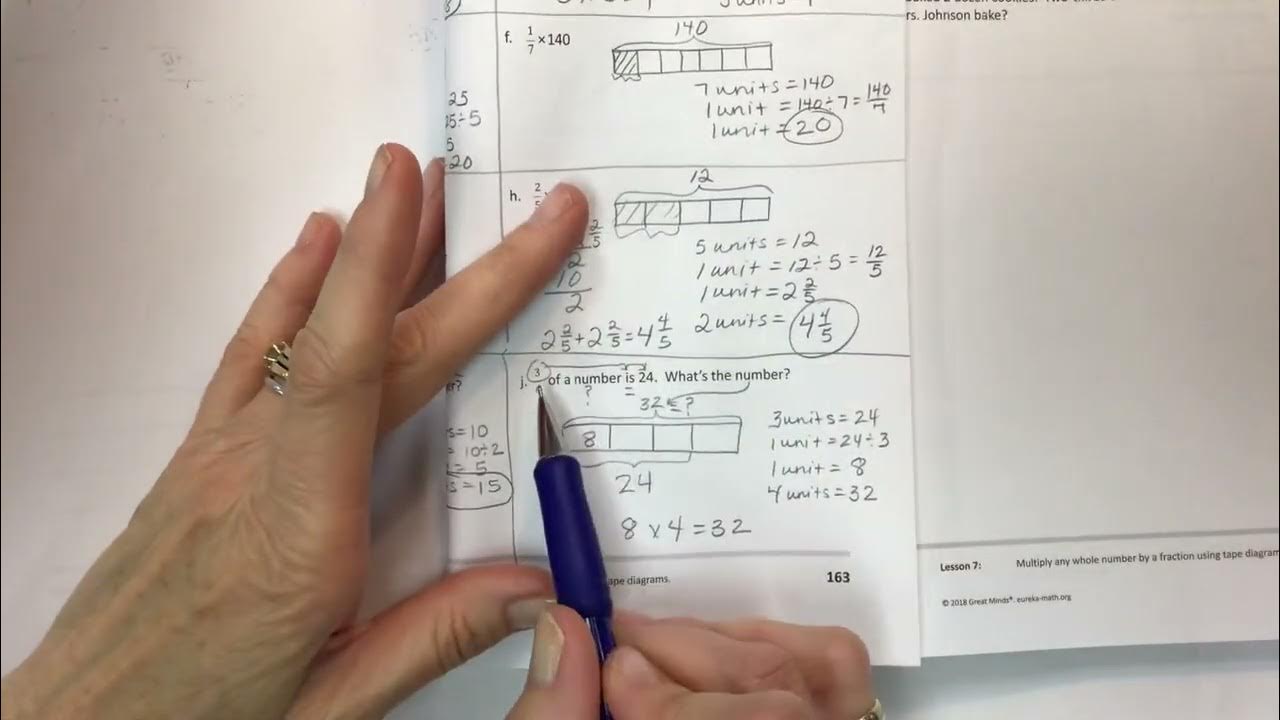 rs. Johnson bake?
f. 1/7 × 140
140
7 units = 140
1 unit = 140 ÷ 7 = 140/7
1 unit = 20
25
25 ÷ 5
5
20
h. 2/5
12
2/5
2
10
2
5 units = 12
1 unit = 12 ÷ 5 = 12/5
1 unit = 2 2/5
2 units = 4 4/5
2 2/5 + 2 2/5 = 4 4/5
j. 3 of a number is 24. What's the number?
?
32 = ?
8
24
3 units = 24
1 unit = 24 ÷ 3
1 unit = 8
4 units = 32
8 × 4 = 32
= 10
= 10 ÷ 2
= 5
= 15
tape diagrams.
163
Lesson 7: Multiply any whole number by a fraction using tape diagram
© 2018 Great Minds®. eureka-math.org